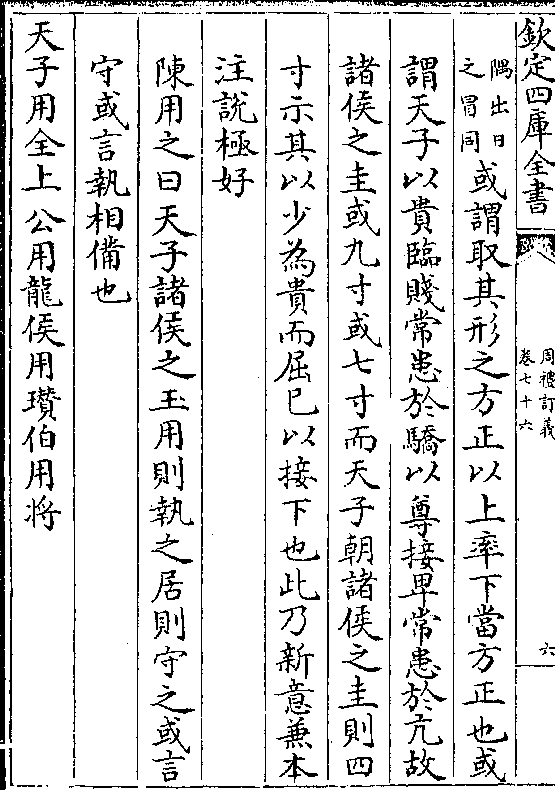 欽定四庫全書
周禮訂義
卷七十六
六
隅出日
之冒同
或謂取其形之方正以上率下當方正也或
謂天子以貴臨賤常患於驕以尊接卑常患於亢故
諸侯之圭或九寸或七寸而天子朝諸侯之圭則四
寸示其以少為貴而屈已以接下也此乃新意兼本
注說極好
陳用之曰天子諸侯之玉用則執之居則守之或言
守或言執相備也
天子用全上公用龍侯用瓚伯用将